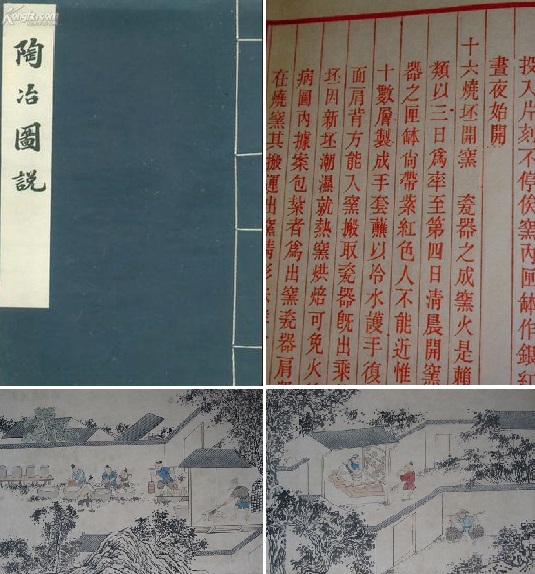 Kongfz.com
陶冶圖說
投入片刻不停俟窯內匣鉢作銀紅
晝夜始開
十六燒坯開窯 瓷器之成窯火是賴
類以三日爲率至第四日清晨開窯
器之匣鉢尙帶紫紅色人不能近惟
十數層製成手套蘸以冷水護手復
面肩背方能入窯搬取瓷器旣出乘
坯因新坯潮濕就熱窯烘焙可免火
病圖內據案包紮者爲出窯瓷器肩
在燒窯其搬運出窯情形